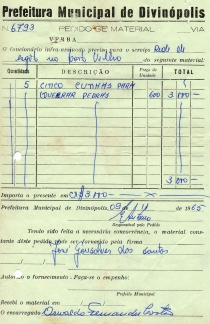 Prefeitura Municipal de Divinópolis
N.º 6793 PEDIDO DE MATERIAL VIA
VERBA
O funcionário infra-assinado precisa para o serviço Rede de
esgôto no porto Velho
do seguinte material:
Quantidade DESCRIÇÃO Preço da Unidade TOTAL
5 CINCO CUNHAS PARA
QUEBRAR PEDRAS 600 3 000
3 000
Importa a presente em CR$ 3.000
Prefeitura Municipal de Divinópolis, 09 11 1965
Responsável pelo Pedido
Tendo sido feita a necessária concorrência, o material cons-
tante dêste pedido deve ser fornecido pela firma
José Gonçalves dos Santos
Autorizo o fornecimento. Faça-se o empenho:
Prefeito Municipal
Recebi o material em
O encarregado Oswaldo Fernandes